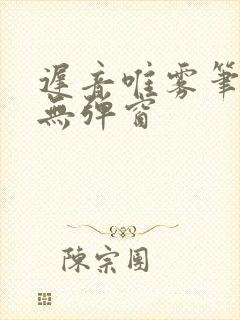 遲音唯雾筆
無彈窗
陳宗團